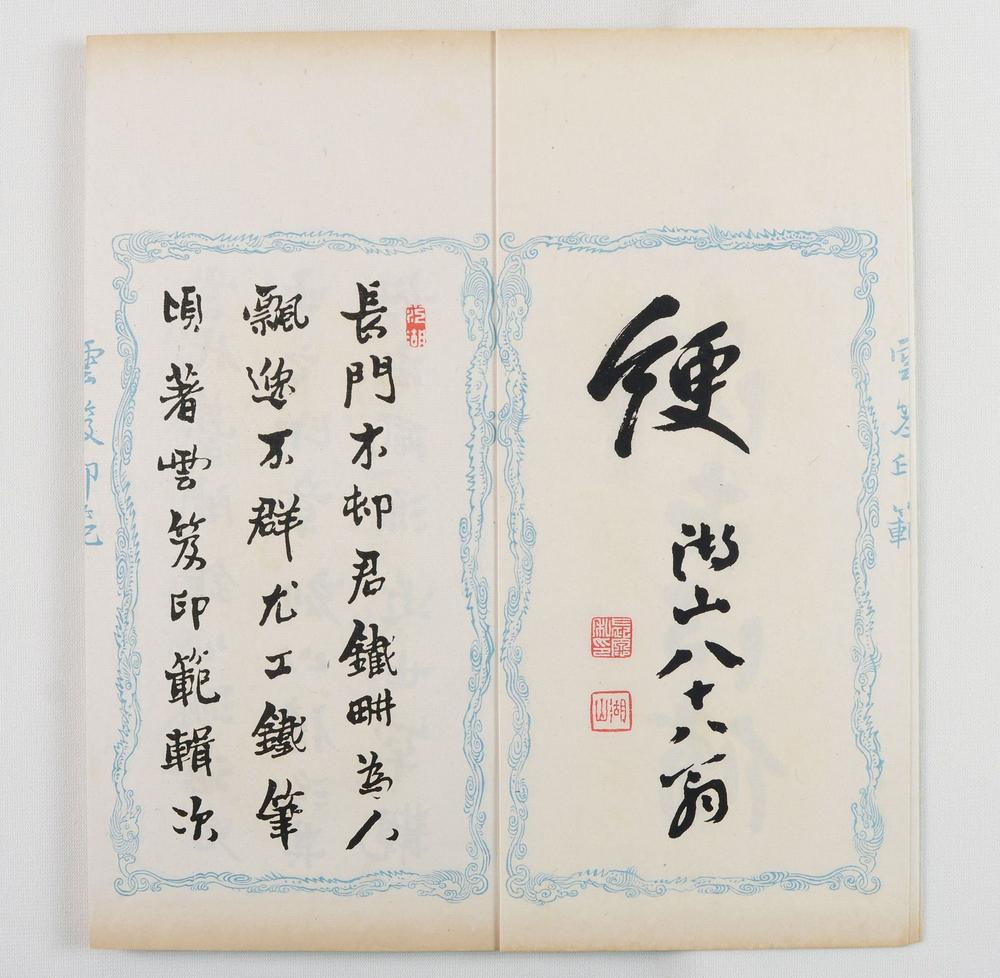 綆
湖山八十八翁
湖山
長門木邨君鐵畊為人
飄逸不群尤工鐵筆
頃著雲笈印範輯次
雲笈印範
雲笈印範